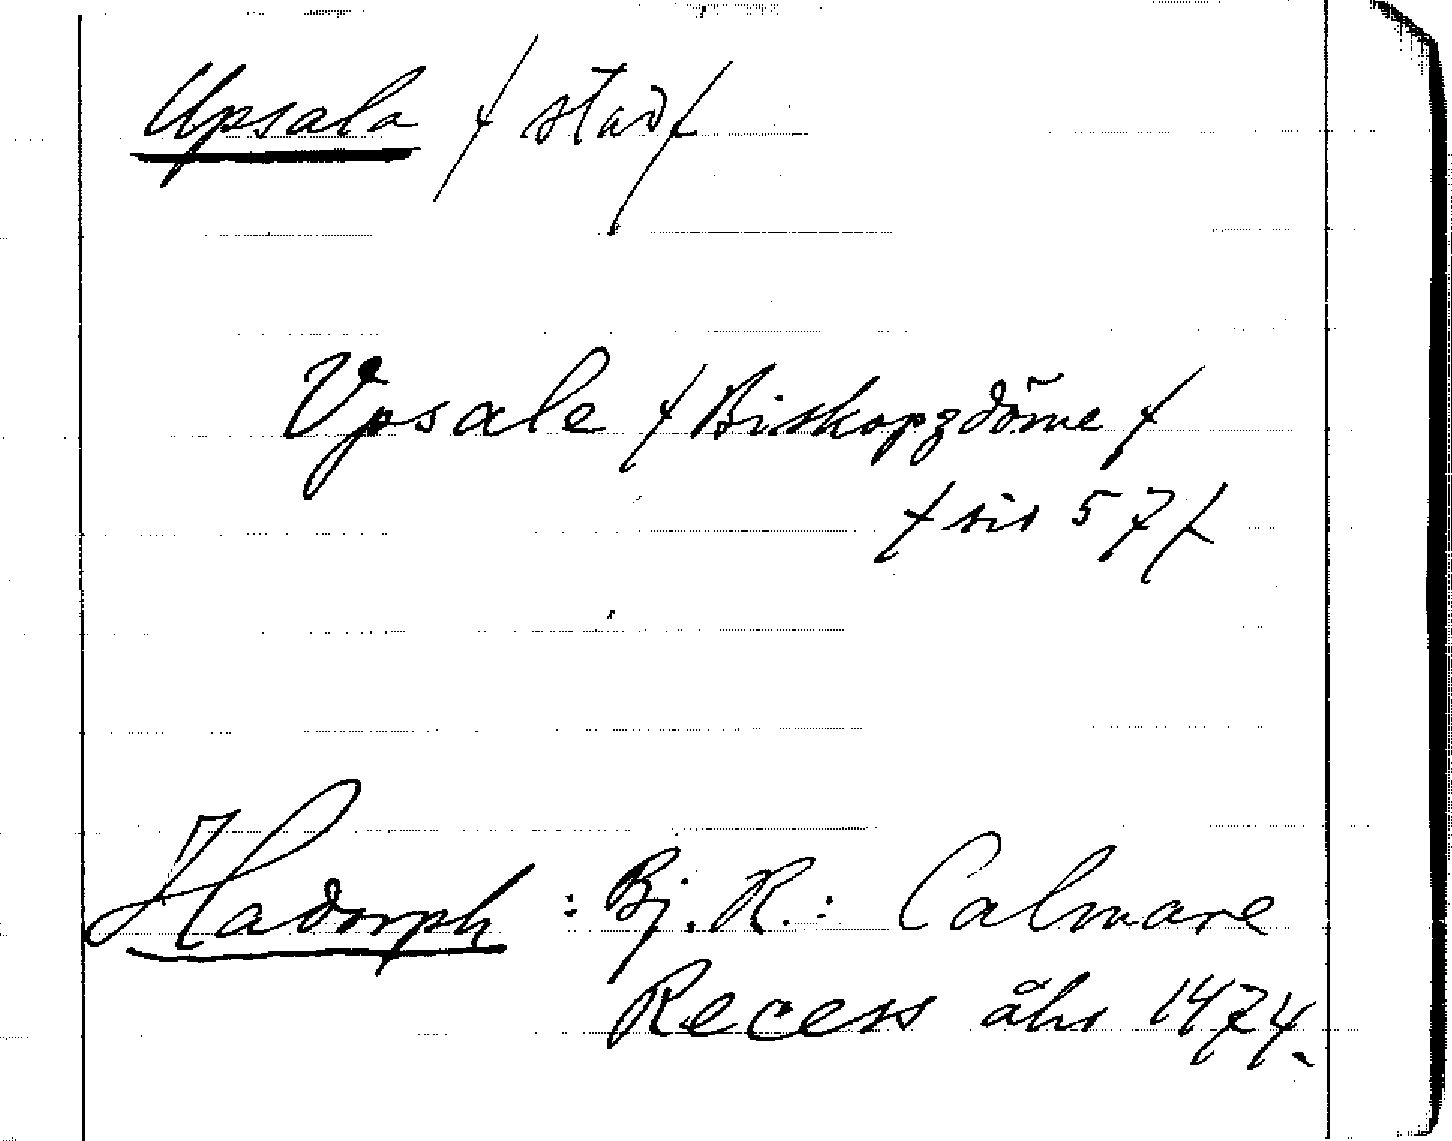 Upsala / stad /
Vpsale / Biskopzdöme /
/ sid 57 /
Hadorph : Bj. R. : Calmare
Recess åhr 1474.